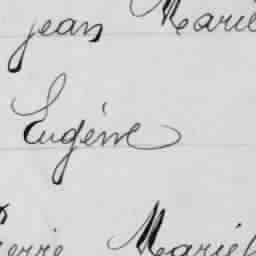 jean Marie
Eugène
Pierre Mariel